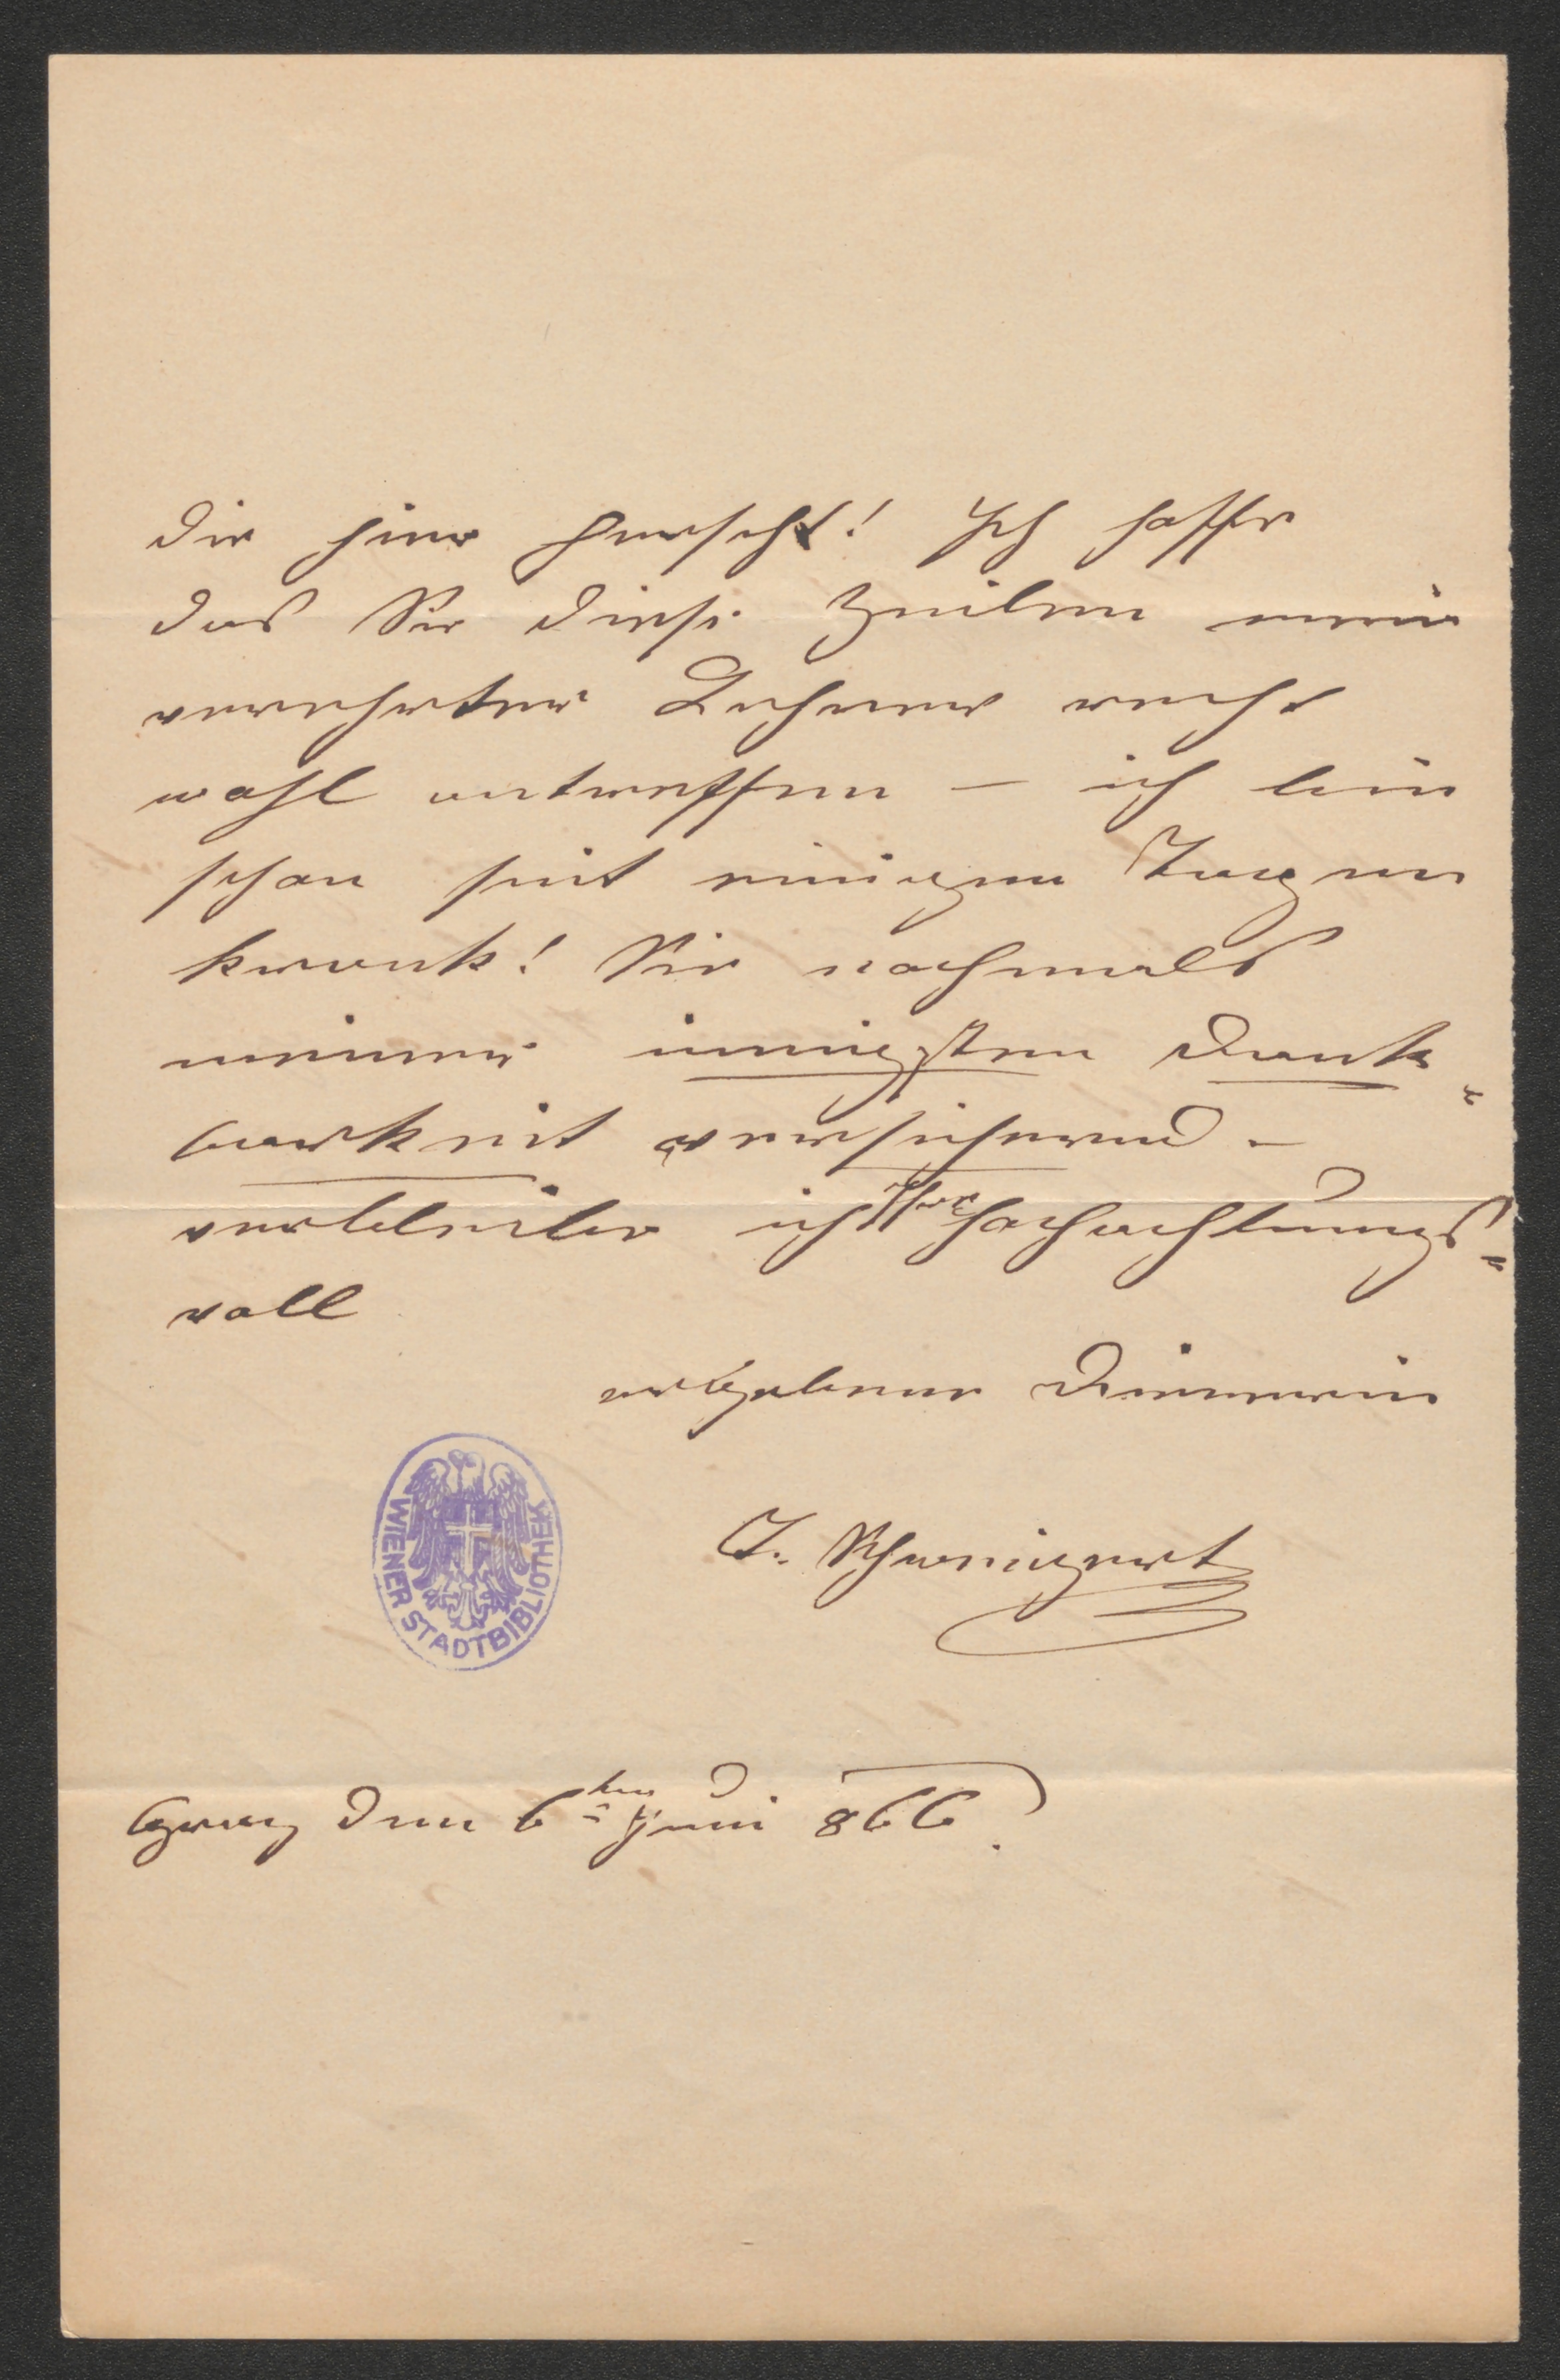 die hier herscht! Ich hoffe
das Sie diese Zeilen mein
verehrter Lehrer recht
wohl antreffen – ich bin
schon seit einigen Tagen
krank! Sie nochmals
meiner innigsten Dank„
barkeit versichernd –
verbleibe ich Ihre hochachtungs„
voll
ergebene Dienerin
J. Schweigert
WIENER STADTBIBLIOTHEK
Graz den 6ten Juni 866.